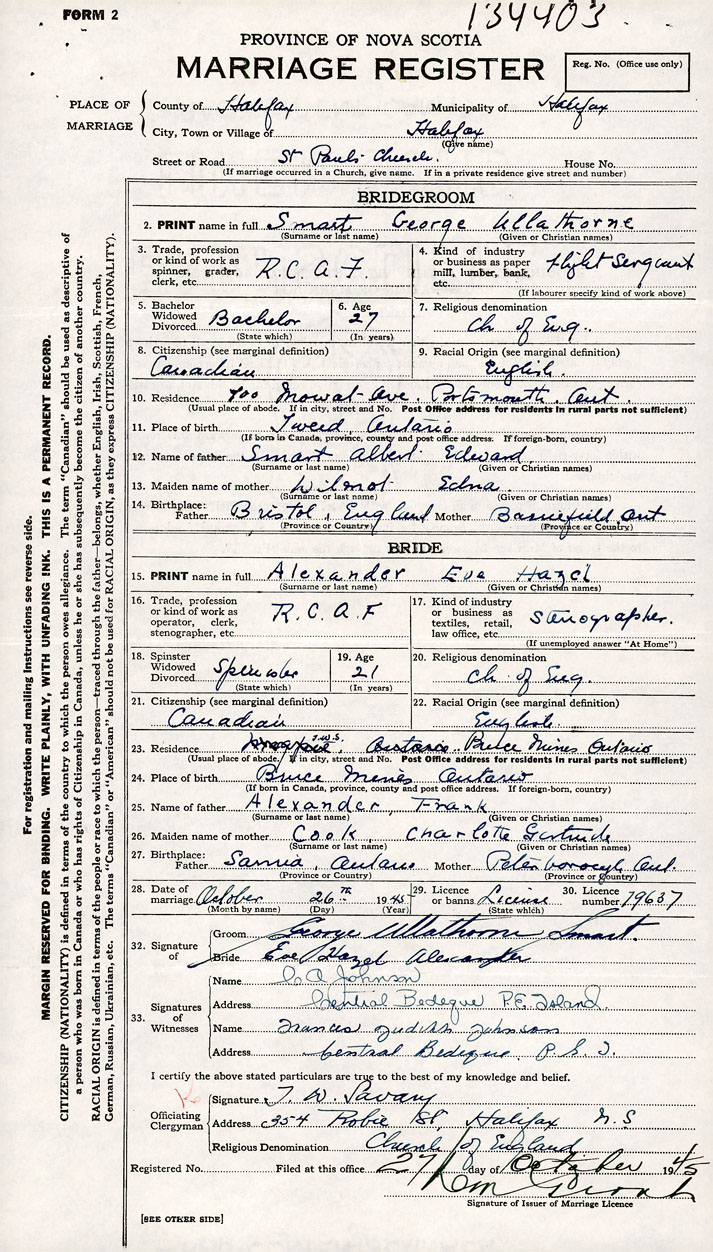 FORM 2
134403
PROVINCE OF NOVA SCOTIA
MARRIAGE REGISTER
Reg. No. (Office use only)
PLACE OF MARRIAGE
County of Halifax Municipality of Halifax
City, Town or Village of Halifax
(Give name)
Street or Road St Paul's Church. House No.
(If marriage occurred in a Church, give name. If in a private residence give street and number)
BRIDEGROOM
2. PRINT name in full Smart George Ullathorne
(Surname or last name) (Given or Christian names)
3. Trade, profession or kind of work as spinner, grader, clerk, etc. R.C.A.F.
4. Kind of industry or business as paper mill, lumber, bank, etc. Flight Sergeant
(If labourer specify kind of work above)
5. Bachelor Widowed Divorced Bachelor
(State which)
6. Age 27
(In years)
7. Religious denomination
Ch of Eng.
8. Citizenship (see marginal definition)
Canadian
9. Racial Origin (see marginal definition)
English.
10. Residence 700 Mowat Ave. Portsmouth. Ont.
(Usual place of abode. If in city, street and No. Post Office address for residents in rural parts not sufficient)
11. Place of birth Tweed, Ontario
(If born in Canada, province, county and post office address. If foreign-born, country)
12. Name of father Smart Albert Edward
(Surname or last name) (Given or Christian names)
13. Maiden name of mother Wilmot Edna
(Surname or last name) (Given or Christian names)
14. Birthplace: Father Bristol, England Mother Barriefield, Ont
(Province or Country) (Province or Country)
BRIDE
15. PRINT name in full Alexander Eve Hazel
(Surname or last name) (Given or Christian names)
16. Trade, profession or kind of work as operator, clerk, stenographer, etc. R.C.A.F
17. Kind of industry or business as textiles, retail, law office, etc. Stenographer.
(If unemployed answer "At Home")
18. Spinster Widowed Divorced Spinster
(State which)
19. Age 21
(In years)
20. Religious denomination
Ch of Eng.
21. Citizenship (see marginal definition)
Canadian
22. Racial Origin (see marginal definition)
English.
23. Residence J.W.S. Ontario. Bruce Mines Ontario
(Usual place of abode. If in city, street and No. Post Office address for residents in rural parts not sufficient)
24. Place of birth Bruce Mines Ontario
(If born in Canada, province, county and post office address. If foreign-born, country)
25. Name of father Alexander, Frank
(Surname or last name) (Given or Christian names)
26. Maiden name of mother Cook, Charlotte Gertrude
(Surname or last name) (Given or Christian names)
27. Birthplace: Father Sarnia, Ontario Mother Peterborough Ont.
(Province or Country) (Province or Country)
28. Date of marriage October 26th 1945
(Month by name) (Day) (Year)
29. Licence or banns License
(State which)
30. Licence number 79637
32. Signature of
Groom George Ullathorne Smart.
Bride Eve Hazel Alexander
33. Signatures of Witnesses
Name C A Johnson
Address Central Bedeque P.E. Island.
Name Frances Judith Johnson
Address Central Bedeque, P.E.I.
I certify the above stated particulars are true to the best of my knowledge and belief.
Officiating Clergyman
Signature T. W. Savary
Address 354 Robie St, Halifax N.S
Religious Denomination Church of England
Registered No. Filed at this office 27 day of October 1945
Signature of Issuer of Marriage Licence
[SEE OTHER SIDE]
For registration and mailing instructions see reverse side.
MARGIN RESERVED FOR BINDING. WRITE PLAINLY, WITH UNFADING INK. THIS IS A PERMANENT RECORD.
CITIZENSHIP (NATIONALITY) is defined in terms of the country to which the person owes allegiance. The term "Canadian" should be used as descriptive of
a person who was born in Canada or who has rights of Citizenship in Canada, unless he or she has subsequently become the citizen of another country.
RACIAL ORIGIN is defined in terms of the people or race to which the person—traced through the father—belongs, whether English, Irish, Scottish, French,
German, Russian, Ukrainian, etc. The terms "Canadian" or "American" should not be used for RACIAL ORIGIN, as they express CITIZENSHIP (NATIONALITY).